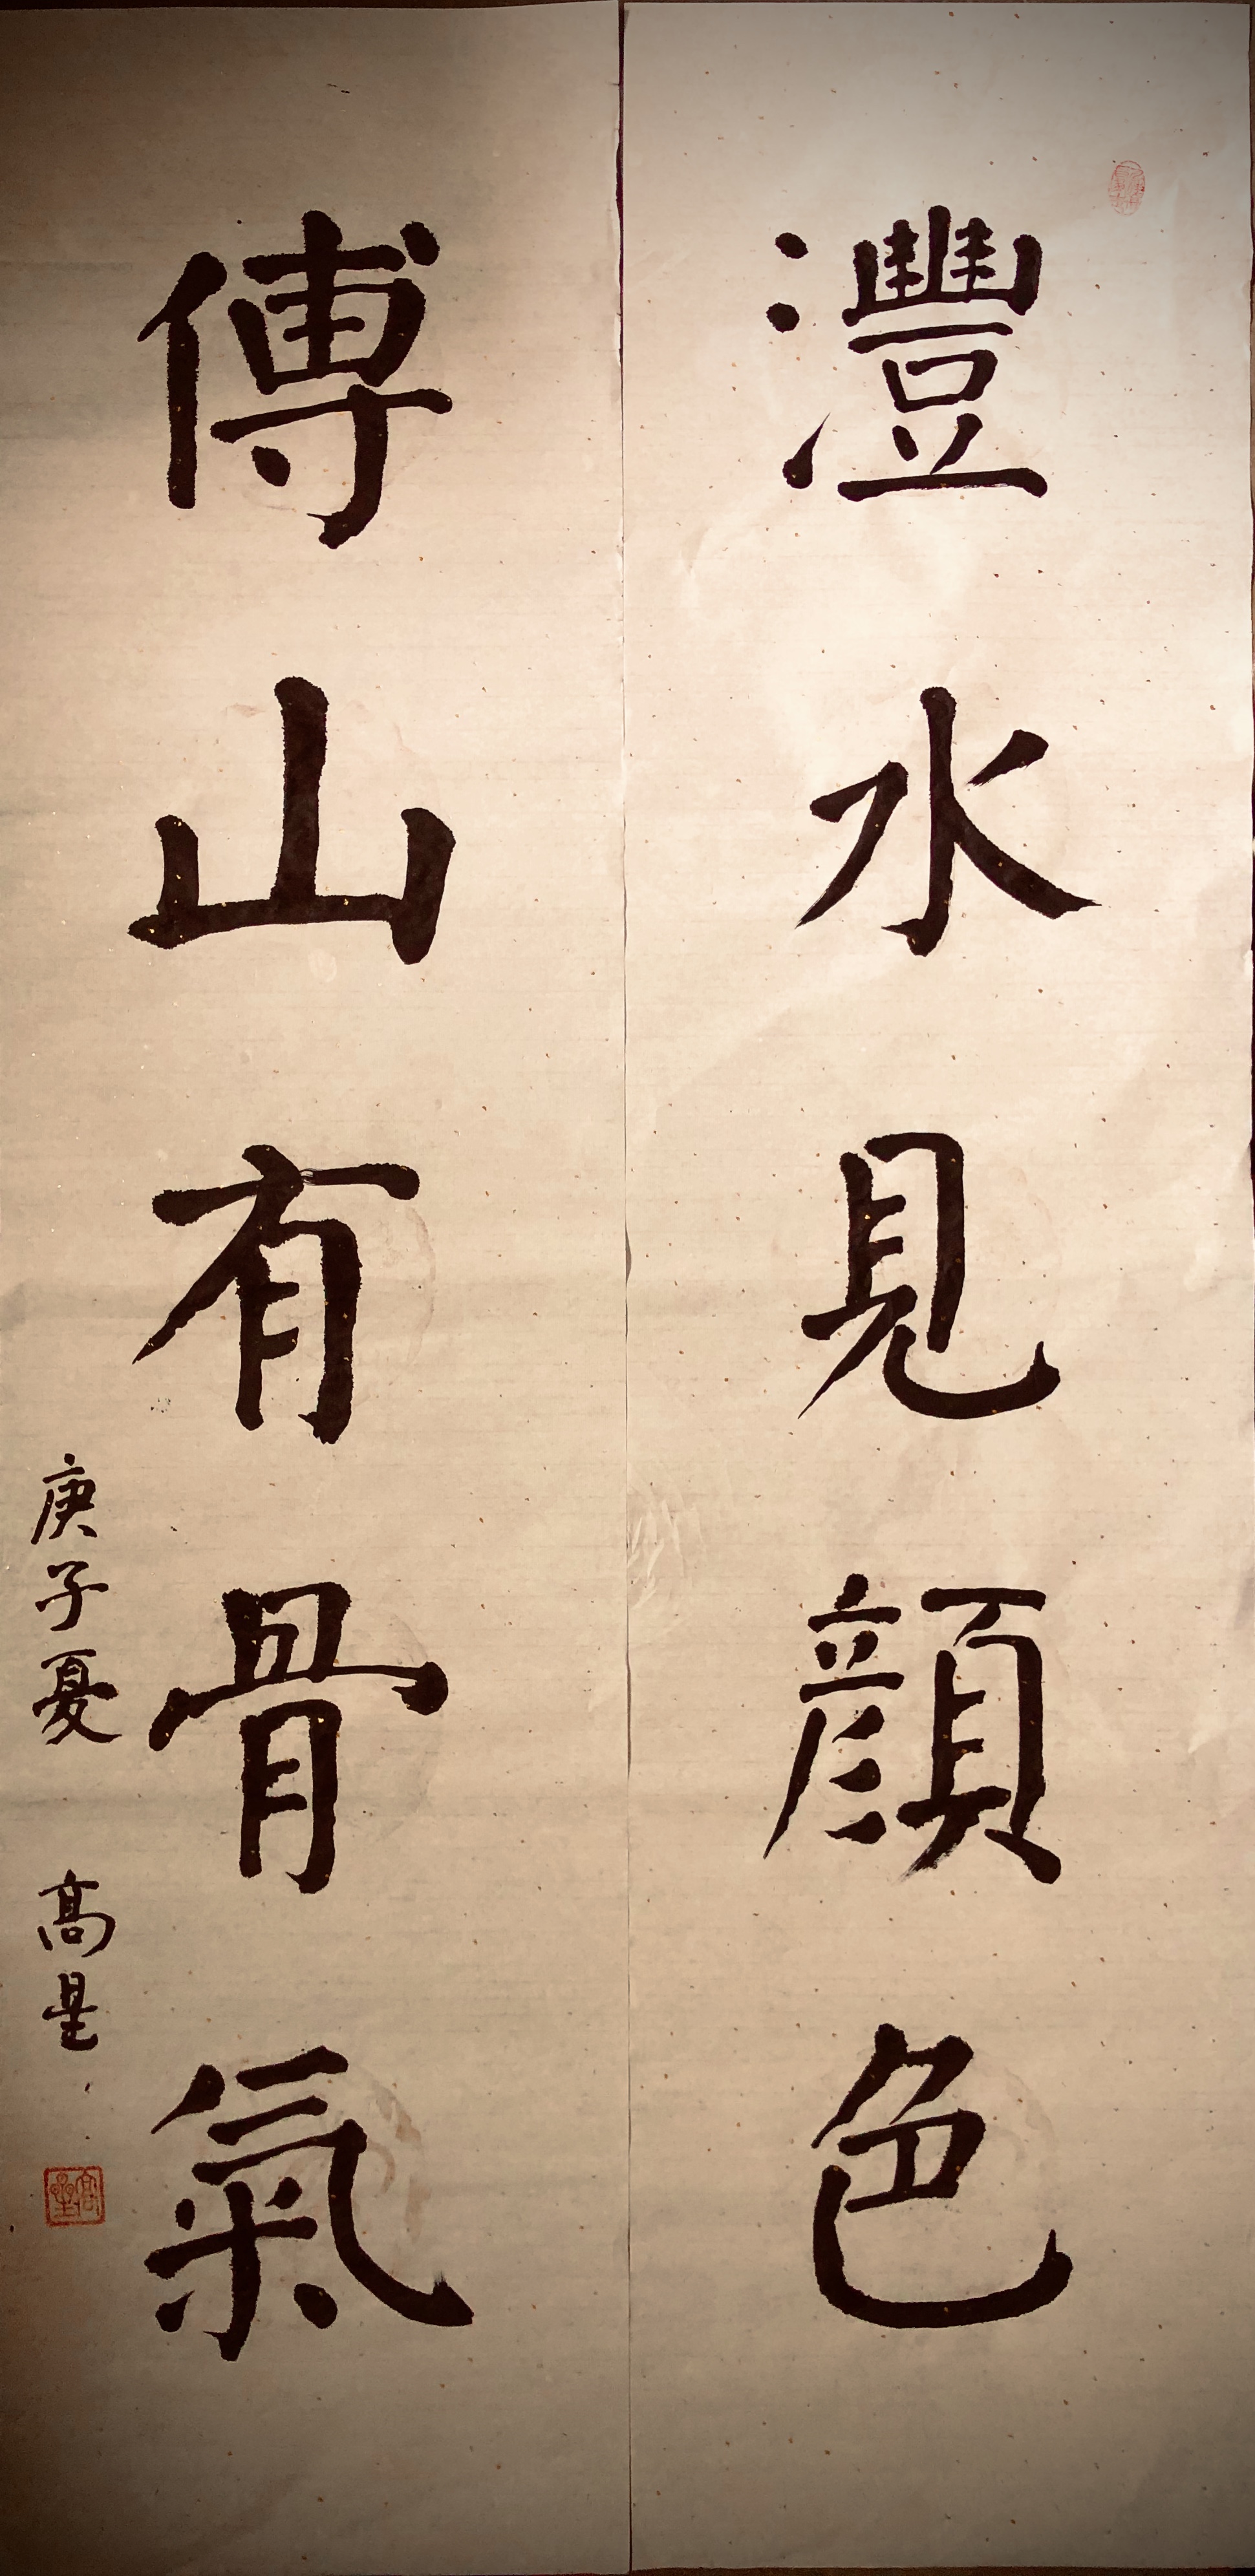 灃水見顔色
傅山有骨氣
庚子夏 高星